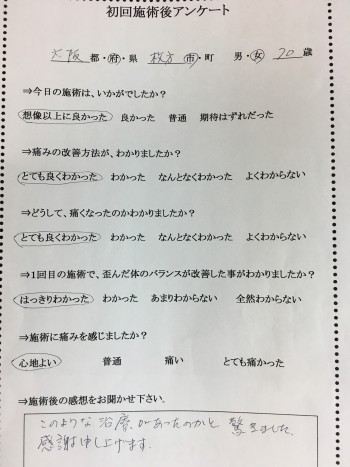 初回施術後アンケート
大阪 都・府・県 枚方 市・町 男・女 20歳
⇒今日の施術は、いかがでしたか?
想像以上に良かった 良かった 普通 期待はずれだった
⇒痛みの改善方法が、わかりましたか?
とても良くわかった わかった なんとなくわかった よくわからない
⇒どうして、痛くなったのかわかりましたか?
とても良くわかった わかった なんとなくわかった よくわからない
⇒1回目の施術で、歪んだ体のバランスが改善した事がわかりましたか?
はっきりわかった わかった あまりわからない 全然わからない
⇒施術に痛みを感じましたか?
心地よい 普通 痛い とても痛かった
⇒施術後の感想をお聞かせ下さい。
このような治療があったのかと驚きました。
感謝申し上げます。